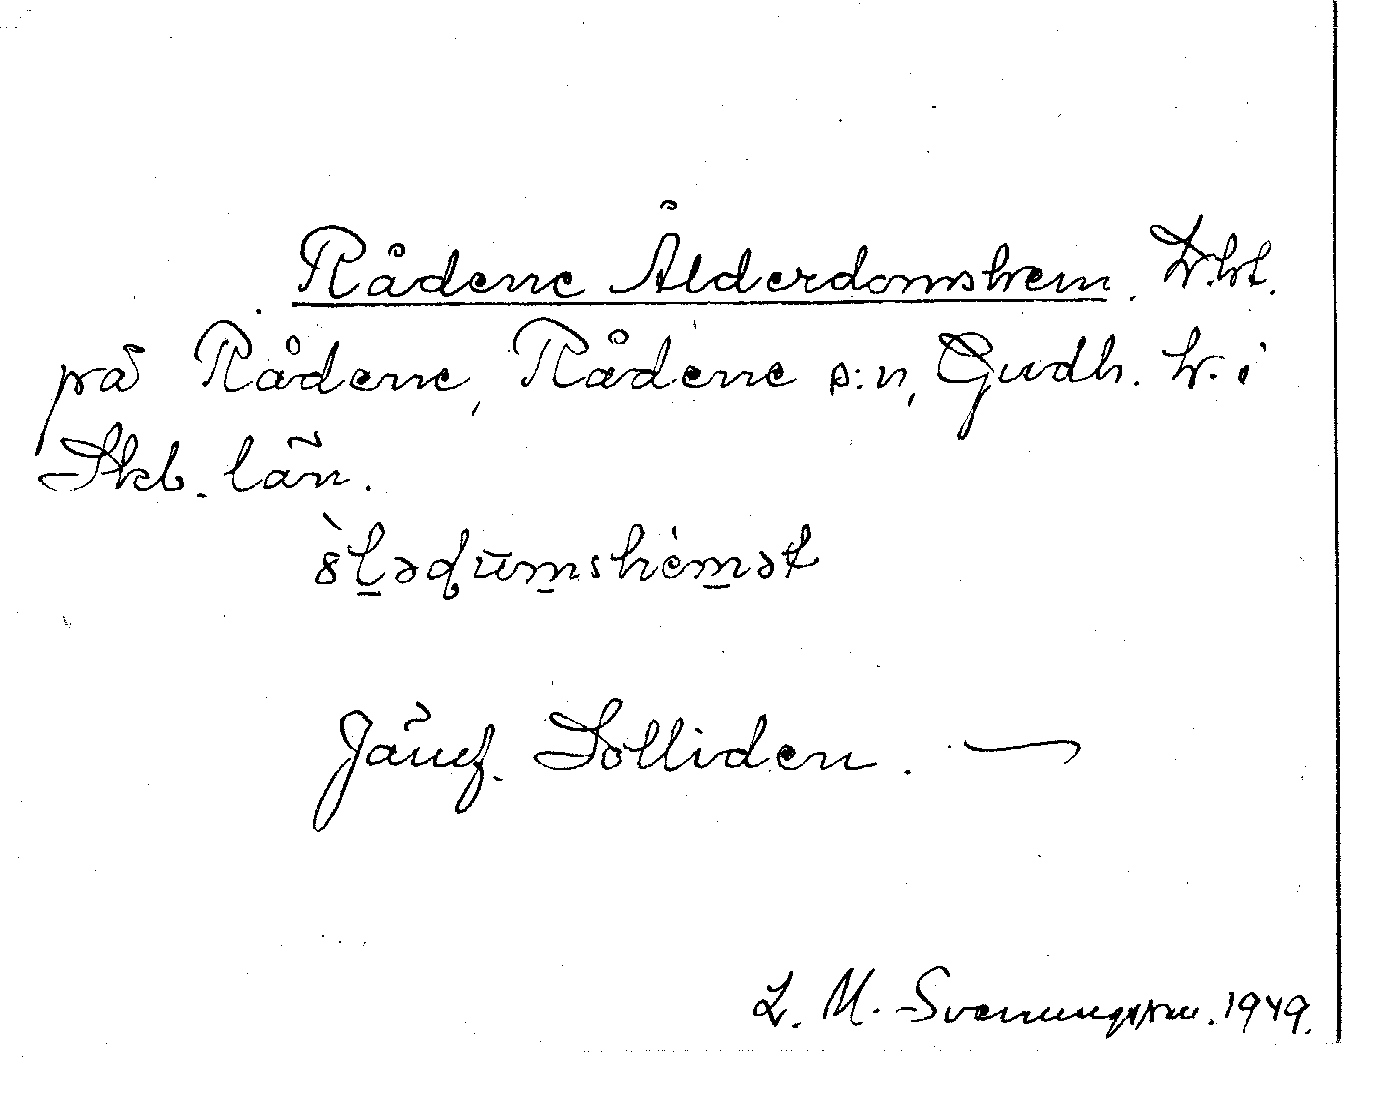 Rådene Ålderdomshem. Lht.
på Rådene, Rådene s:n, Gudh. h. i
Skb. län.
Jämf. Solliden. —
L. M. Svenungsson. 1949.